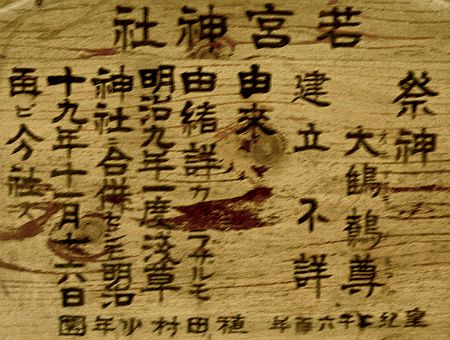 若宮神社
祭神
大鷦鷯尊
建立 不詳
由来
由緒詳カナラザルモ
明治九年一度淺草
神社ニ合併セシモ明治
十九年十一月十六日
再ビ分社ス
皇紀二千六百年 植田村少年團